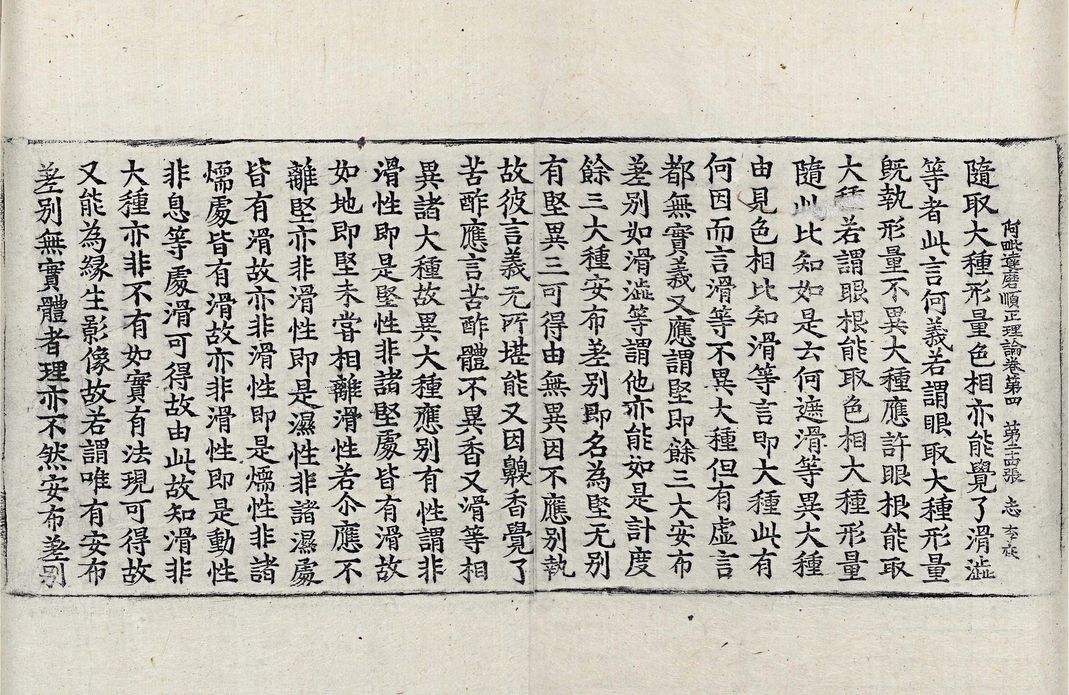 阿毗達磨順正理論卷第四 第二十四張 志
隨取大種形量色相亦能覺了滑澁
等者此言何義若謂眼取大種形量
旣執形量不異大種應許眼根能取
大種若謂眼根能取色相大種形量
隨此比知如是云何遮滑等異大種
由見色相比知滑等言即大種此有
何因而言滑等不異大種但有虛言
都無實義又應謂堅即餘三大安布
差別如滑澁等謂他亦能如是計度
餘三大種安布差別即名為堅无別
有堅異三可得由無異因不應別執
故彼言義无所堪能又因齅香覺了
苦酢應言苦酢體不異香又滑等相
異諸大種故異大種應別有性謂非
滑性即是堅性非諸堅處皆有滑故
如地即堅未嘗相離滑性若尒應不
離堅亦非滑性即是濕性非諸濕處
皆有滑故亦非滑性即是煗性非諸
煗處皆有滑故亦非滑性即是動性
非息等處滑可得故由此故知滑非
大種亦非不有如實有法現可得故
又能為緣生影像故若謂唯有安布
差別無實體者理亦不然安布差別